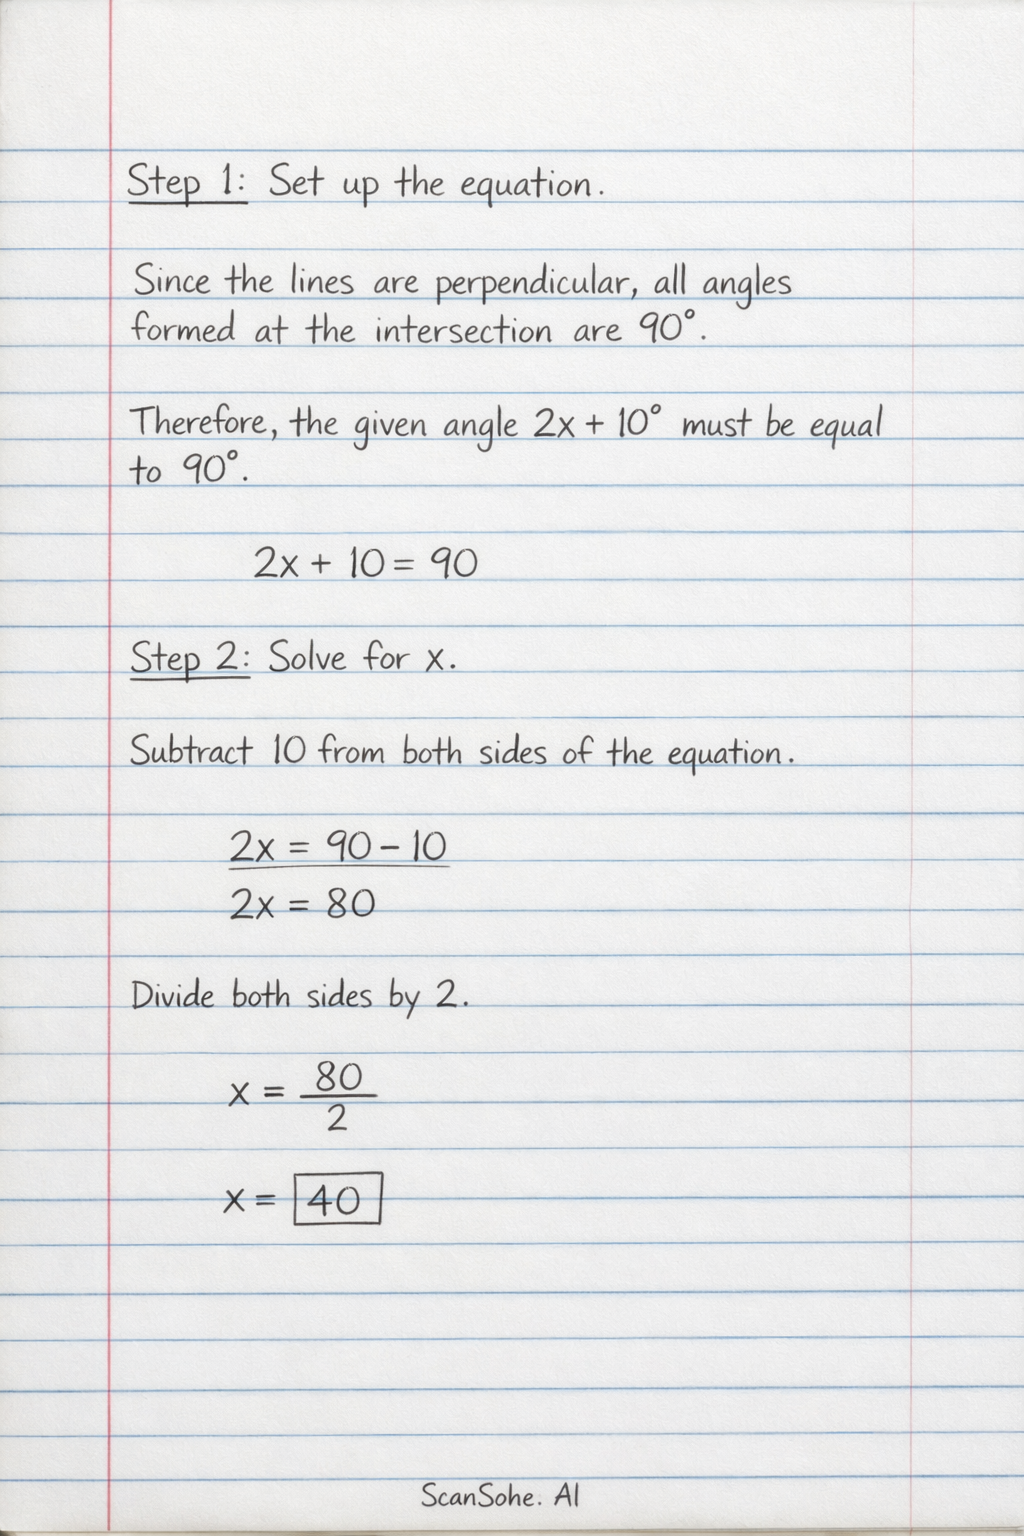 Step 1: Set up the equation.
Since the lines are perpendicular, all angles
formed at the intersection are 90°.
Therefore, the given angle 2x + 10° must be equal
to 90°.
2x + 10 = 90
Step 2: Solve for x.
Subtract 10 from both sides of the equation.
2x = 90 - 10
2x = 80
Divide both sides by 2.
x = 80/2
x = 40
ScanSohe. AI